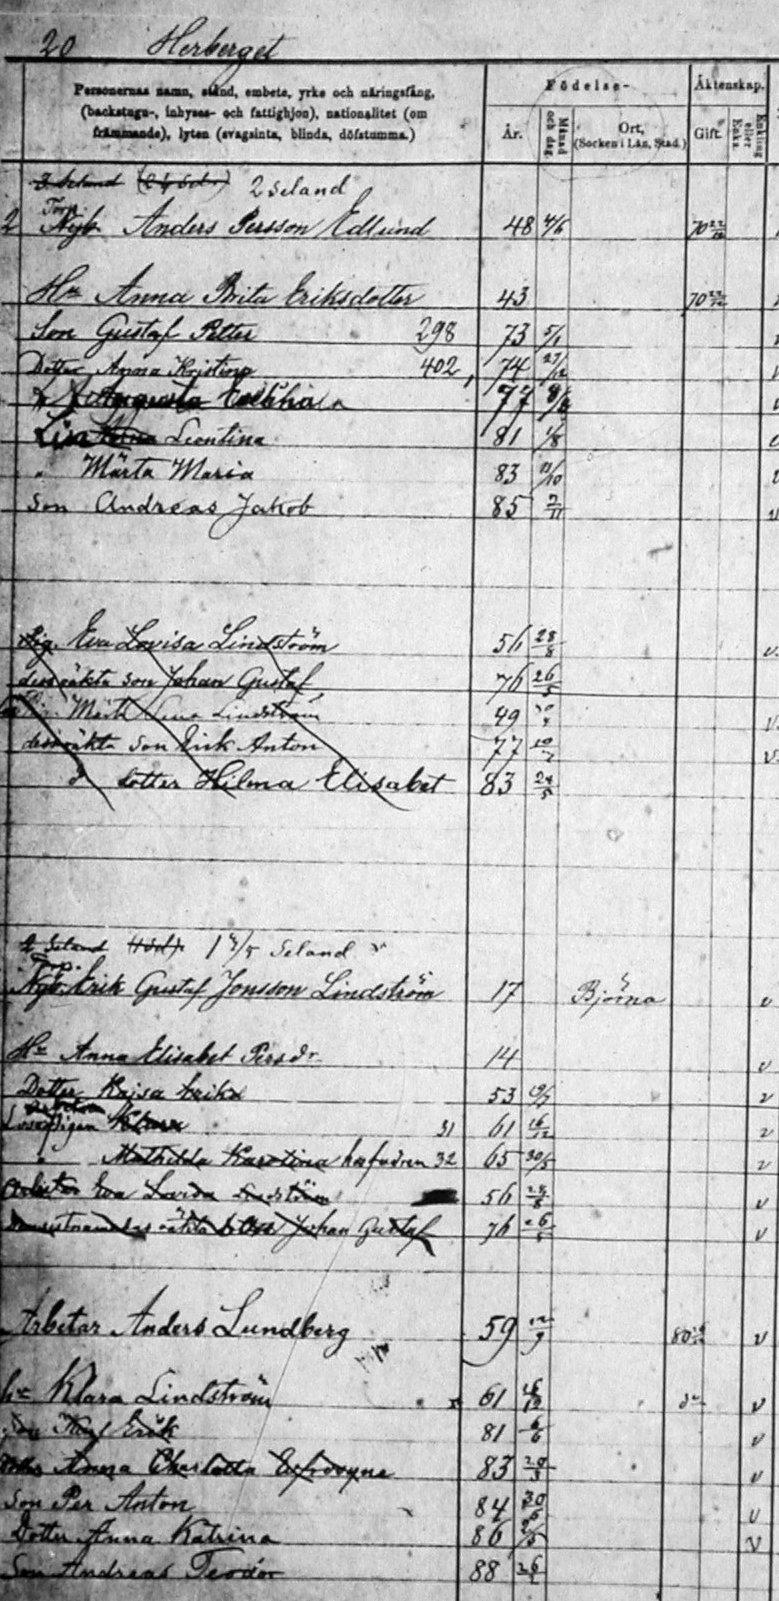 20 Herberget
Personernas namn, stånd, embete, yrke och näringsfång, (backstugu-, inhyses- och fattighjon), nationalitet (om främmande), lyten (svagsinta, blinda, döfstumma.)
Födelse-
År. Månad och dag Ort, (Socken i Län, Stad.)
Äktenskap.
Gift. Enkling eller Enka.
2 Seland
2 Nyb. Anders Persson Edlund 48 4/6 70
Hu Anna Brita Eriksdotter 43 70
Son Gustaf Petter 298 73 5/1
Dotter Anna Kristina 402 74 27/12
Augusta 77
Leontina 81 1/8
" Märta Maria 83 11/10
Son Andreas Jakob 85 7/11
Pig. Eva Lovisa Lindström 56 28/8
dess oäkta son Johan Gustaf 76 26/5
Lindström 49
dess oäkta son Erik Anton 77 10/7
d dotter Hilma Elisabet 83 24/5
2 Seland Seland v
Nyb. Erik Gustaf Jonsson Lindström 17 Björna v
Hu Anna Elisabet Persdr 14 v
Dotter Kajsa Erika 53 v
Klara 31 61 16/12 v
" Mathilda Karolina 32 65 30/5 v
Eva Lovisa Lindström 56 28/8 v
Johan Gustaf 76 26/5 v
Arbetar Anders Lundberg 59 12/9 80 v
hu Klara Lindström x 61 16/12 do v
Karl Erik 81 6/6 v
Anna Charlotta 83 20/3 v
Son Per Anton 84 v
Dotter Anna Katrina 86 v
Son Andreas Teodor 88